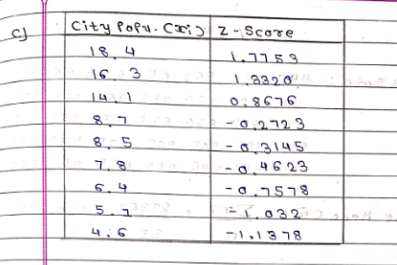 c) City Popu. (xi) Z-Score
18.4 1.7753
16.3 1.3320
14.1 0.8676
8.7 -0.2723
8.5 -0.3145
7.8 -0.4623
6.4 -0.7578
5.1 -1.032
4.6 -1.1378